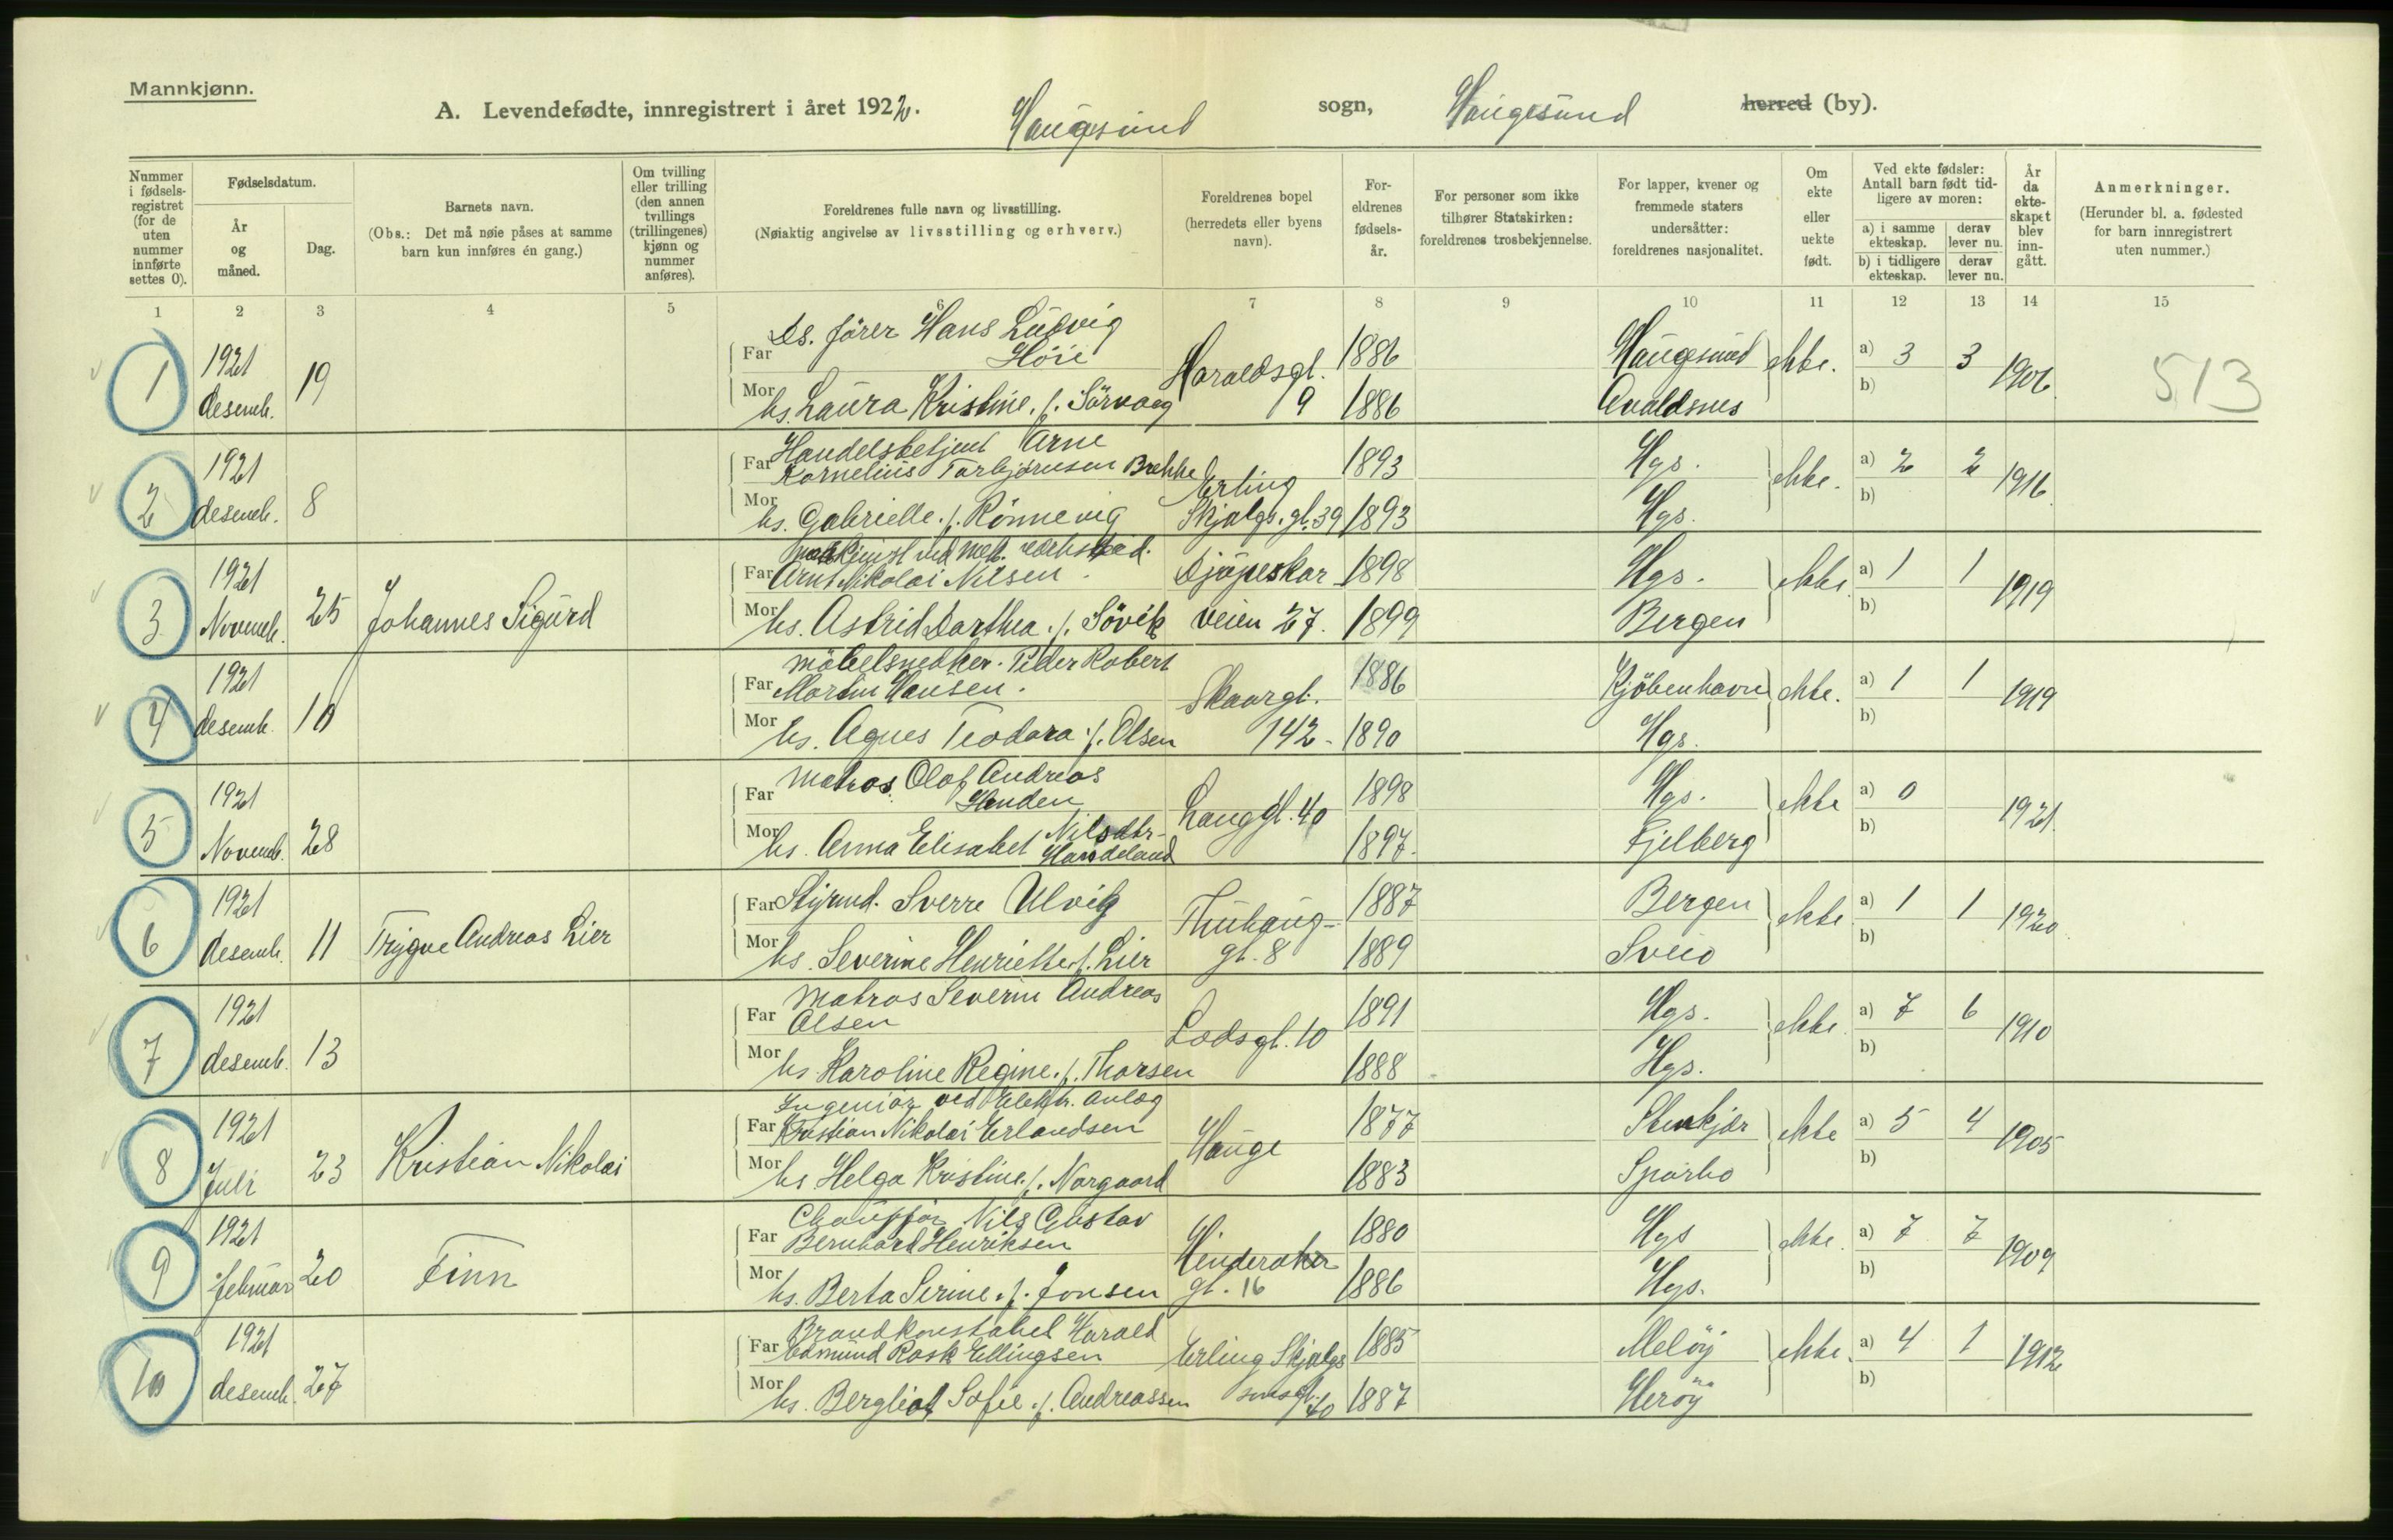 Mannkjønn.
A. Levendefødte, innregistrert i året 1922. Haugesund sogn, Haugesund herred (by).
Nummer i fødsels-registret (for de uten nummer innførte settes 0).
Fødselsdatum.
År og måned.
Dag.
Barnets navn.
(Obs.: Det må nøie påses at samme barn kun innføres én gang.)
Om tvilling eller trilling (den annen tvillings (trillingenes) kjønn og nummer anføres).
Foreldrenes fulle navn og livsstilling.
(Nøiaktig angivelse av livsstilling og erhverv.)
Foreldrenes bopel (herredets eller byens navn).
For-eldrenes fødsels-år.
For personer som ikke tilhører Statskirken: foreldrenes trosbekjennelse.
For lapper, kvener og fremmede staters undersåtter: foreldrenes nasjonalitet.
Om ekte eller uekte født.
Ved ekte fødsler: Antall barn født tid-ligere av moren:
a) i samme ekteskap.
derav lever nu.
b) i tidligere ekteskap.
derav lever nu.
År da ekte-skapet blev inn-gått.
Anmerkninger.
(Herunder bl. a. fødested for barn innregistrert uten nummer.)
1 2 3 4 5 6 7 8 9 10 11 12 13 14 15
1 1921 desemb. 19
Far Ds. fører Hans Ludvig Høie Haraldsgt. 9 1886 Haugesund ekte. a) 3 3 1906 513
Mor hs. Laura Kristine f. Sørvaag 1886 Avaldsnes b)
2 1921 desemb. 8
Far Handelsbetjent Arne Kornelius Torbjørnsen Brekke Erling Skjalgs. gt. 39 1893 Hgs. ekte. a) 2 2 1916
Mor hs. Gabrielle f. Rønnevig 1893 Hgs. b)
3 1921 Novemb. 25 Johannes Sigurd
Far maskinist ved mek. verksted. Arnt Nikolai Nilsen. Djupeskar veien 27. 1898 Hgs. ekte a) 1 1 1919
Mor hs. Astrid Darthea f. Søvik 1899 Bergen b)
4 1921 desemb. 10
Far Møbelsnedker. Peder Robert Martin Hansen. Skaargt. 142 1886 Kjøbenhavn ekte. a) 1 1 1919
Mor hs. Agnes Teodora f. Olsen 1890 Hgs. b)
5 1921 Novemb. 28
Far Matros Olaf Andreas Henden Langgt. 40 1898 Hgs. ekte a) 0 1921
Mor hs. Anna Elisabet Nilsdtr. Handeland 1897. Fjelberg b)
6 1921 desemb. 11 Trygve Andreas Lier
Far Styrmd. Sverre Ulvik Thuhaug-gt. 8 1887 Bergen ekte a) 1 1 1920
Mor hs. Severine Henriette f. Lier 1889 Sveio b)
7 1921 desemb. 13
Far Matros Severin Andreas Olsen Lodsgt. 10 1891 Hgs. ekte a) 7 6 1910
Mor hs. Karoline Regine f. Thorsen 1888 Hgs. b)
8 1921 Juli 23 Kristian Nikolai
Far Ingeniør ved Elektr. anlæg Kristian Nikolai Erlandsen Hauge 1877 Stenkjær ekte a) 5 4 1905
Mor hs Helga Kristine f. Norgaard 1883 Sparbo b)
9 1921 februar 20 Finn
Far Chauffør Nils Gustav Bernhard Henriksen Hinderaker gt. 16 1880 Hgs ekte. a) 7 7 1909
Mor hs. Berta Serine f. Jonsen 1886 Hgs. b)
10 1921 desemb. 27
Far Brandkonstabel Harald Edmund Rask Ellingsen Erling Skjalgs sonsgt. 40 1885 Meløy ekte. a) 4 1 1912
Mor hs. Bergliot Sofie f. Andreassen 1887 Herøy b)